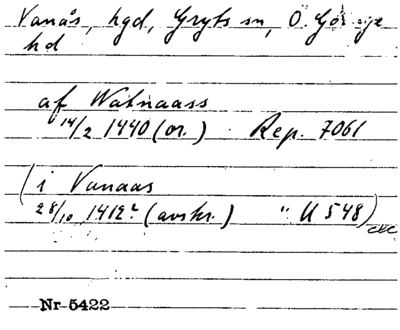 Vanås, hgd, Gryts sn, Ö. Göinge
hd
af Watnaass
14/2 1440 (or.) Rep. 7061
(i Vanaas
28/10 1412? (avskr.) " U 548)
Nr 5422